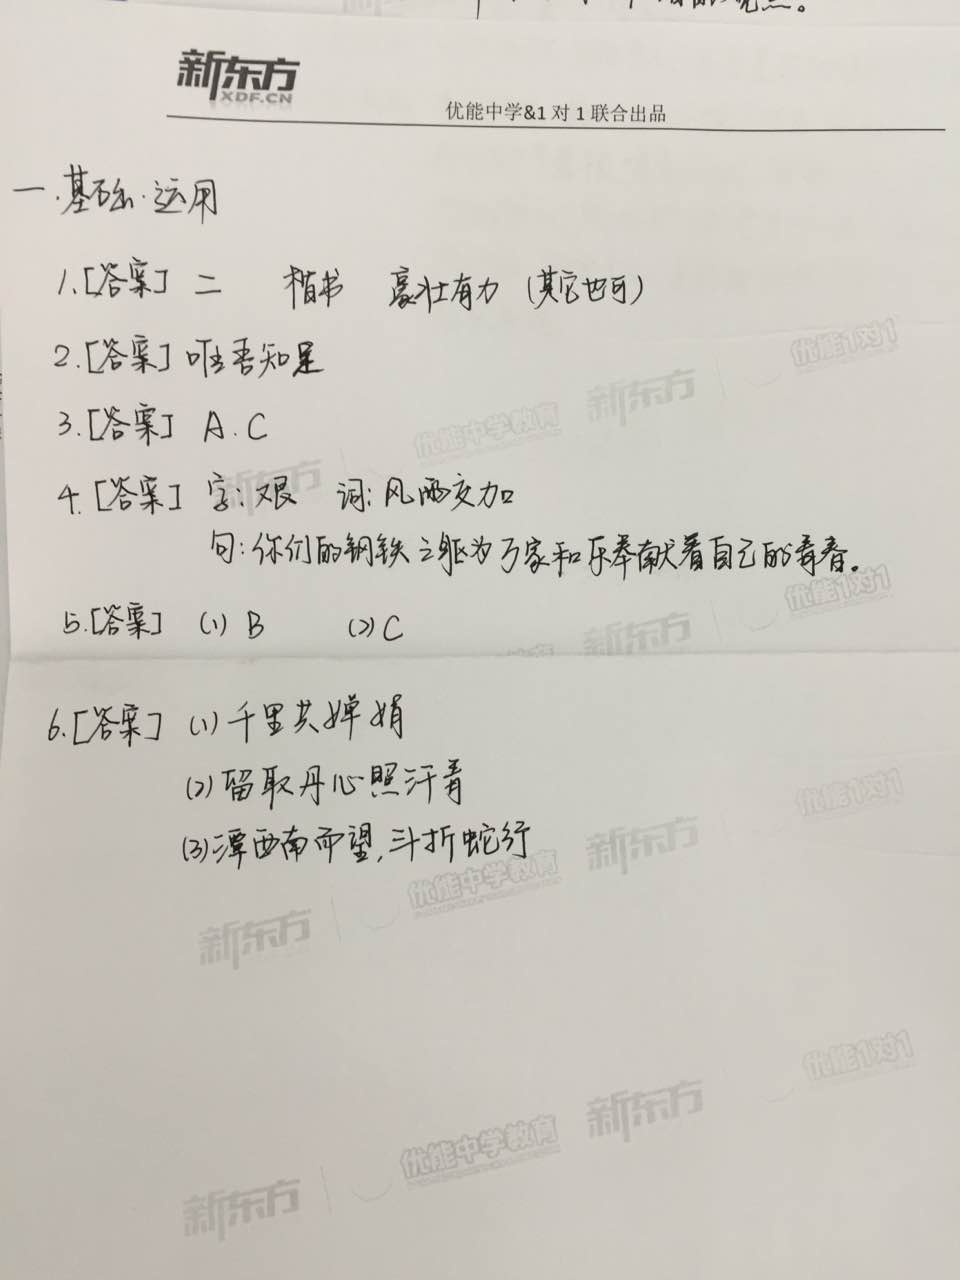 新东方
XDF.CN
优能中学&1 对 1 联合出品
一.基础·运用
1.[答案] 二 楷书 豪壮有力 (其它也可)
2.[答案] 唯吾知足
3.[答案] A.C
4.[答案] 字:艰 词:风雨交加
句:你们的钢铁之躯为万家和乐奉献着自己的青春。
5.[答案] (1) B (2) C
6.[答案] (1) 千里共婵娟
(2) 留取丹心照汗青
(3) 潭西南而望,斗折蛇行
优能1对1
优能中学教育 新东方
新东方
优能1对1
新东方
优能1对1
优能中学教育 新东方
新东方
优能1对1
优能中学教育 新东方
新东方